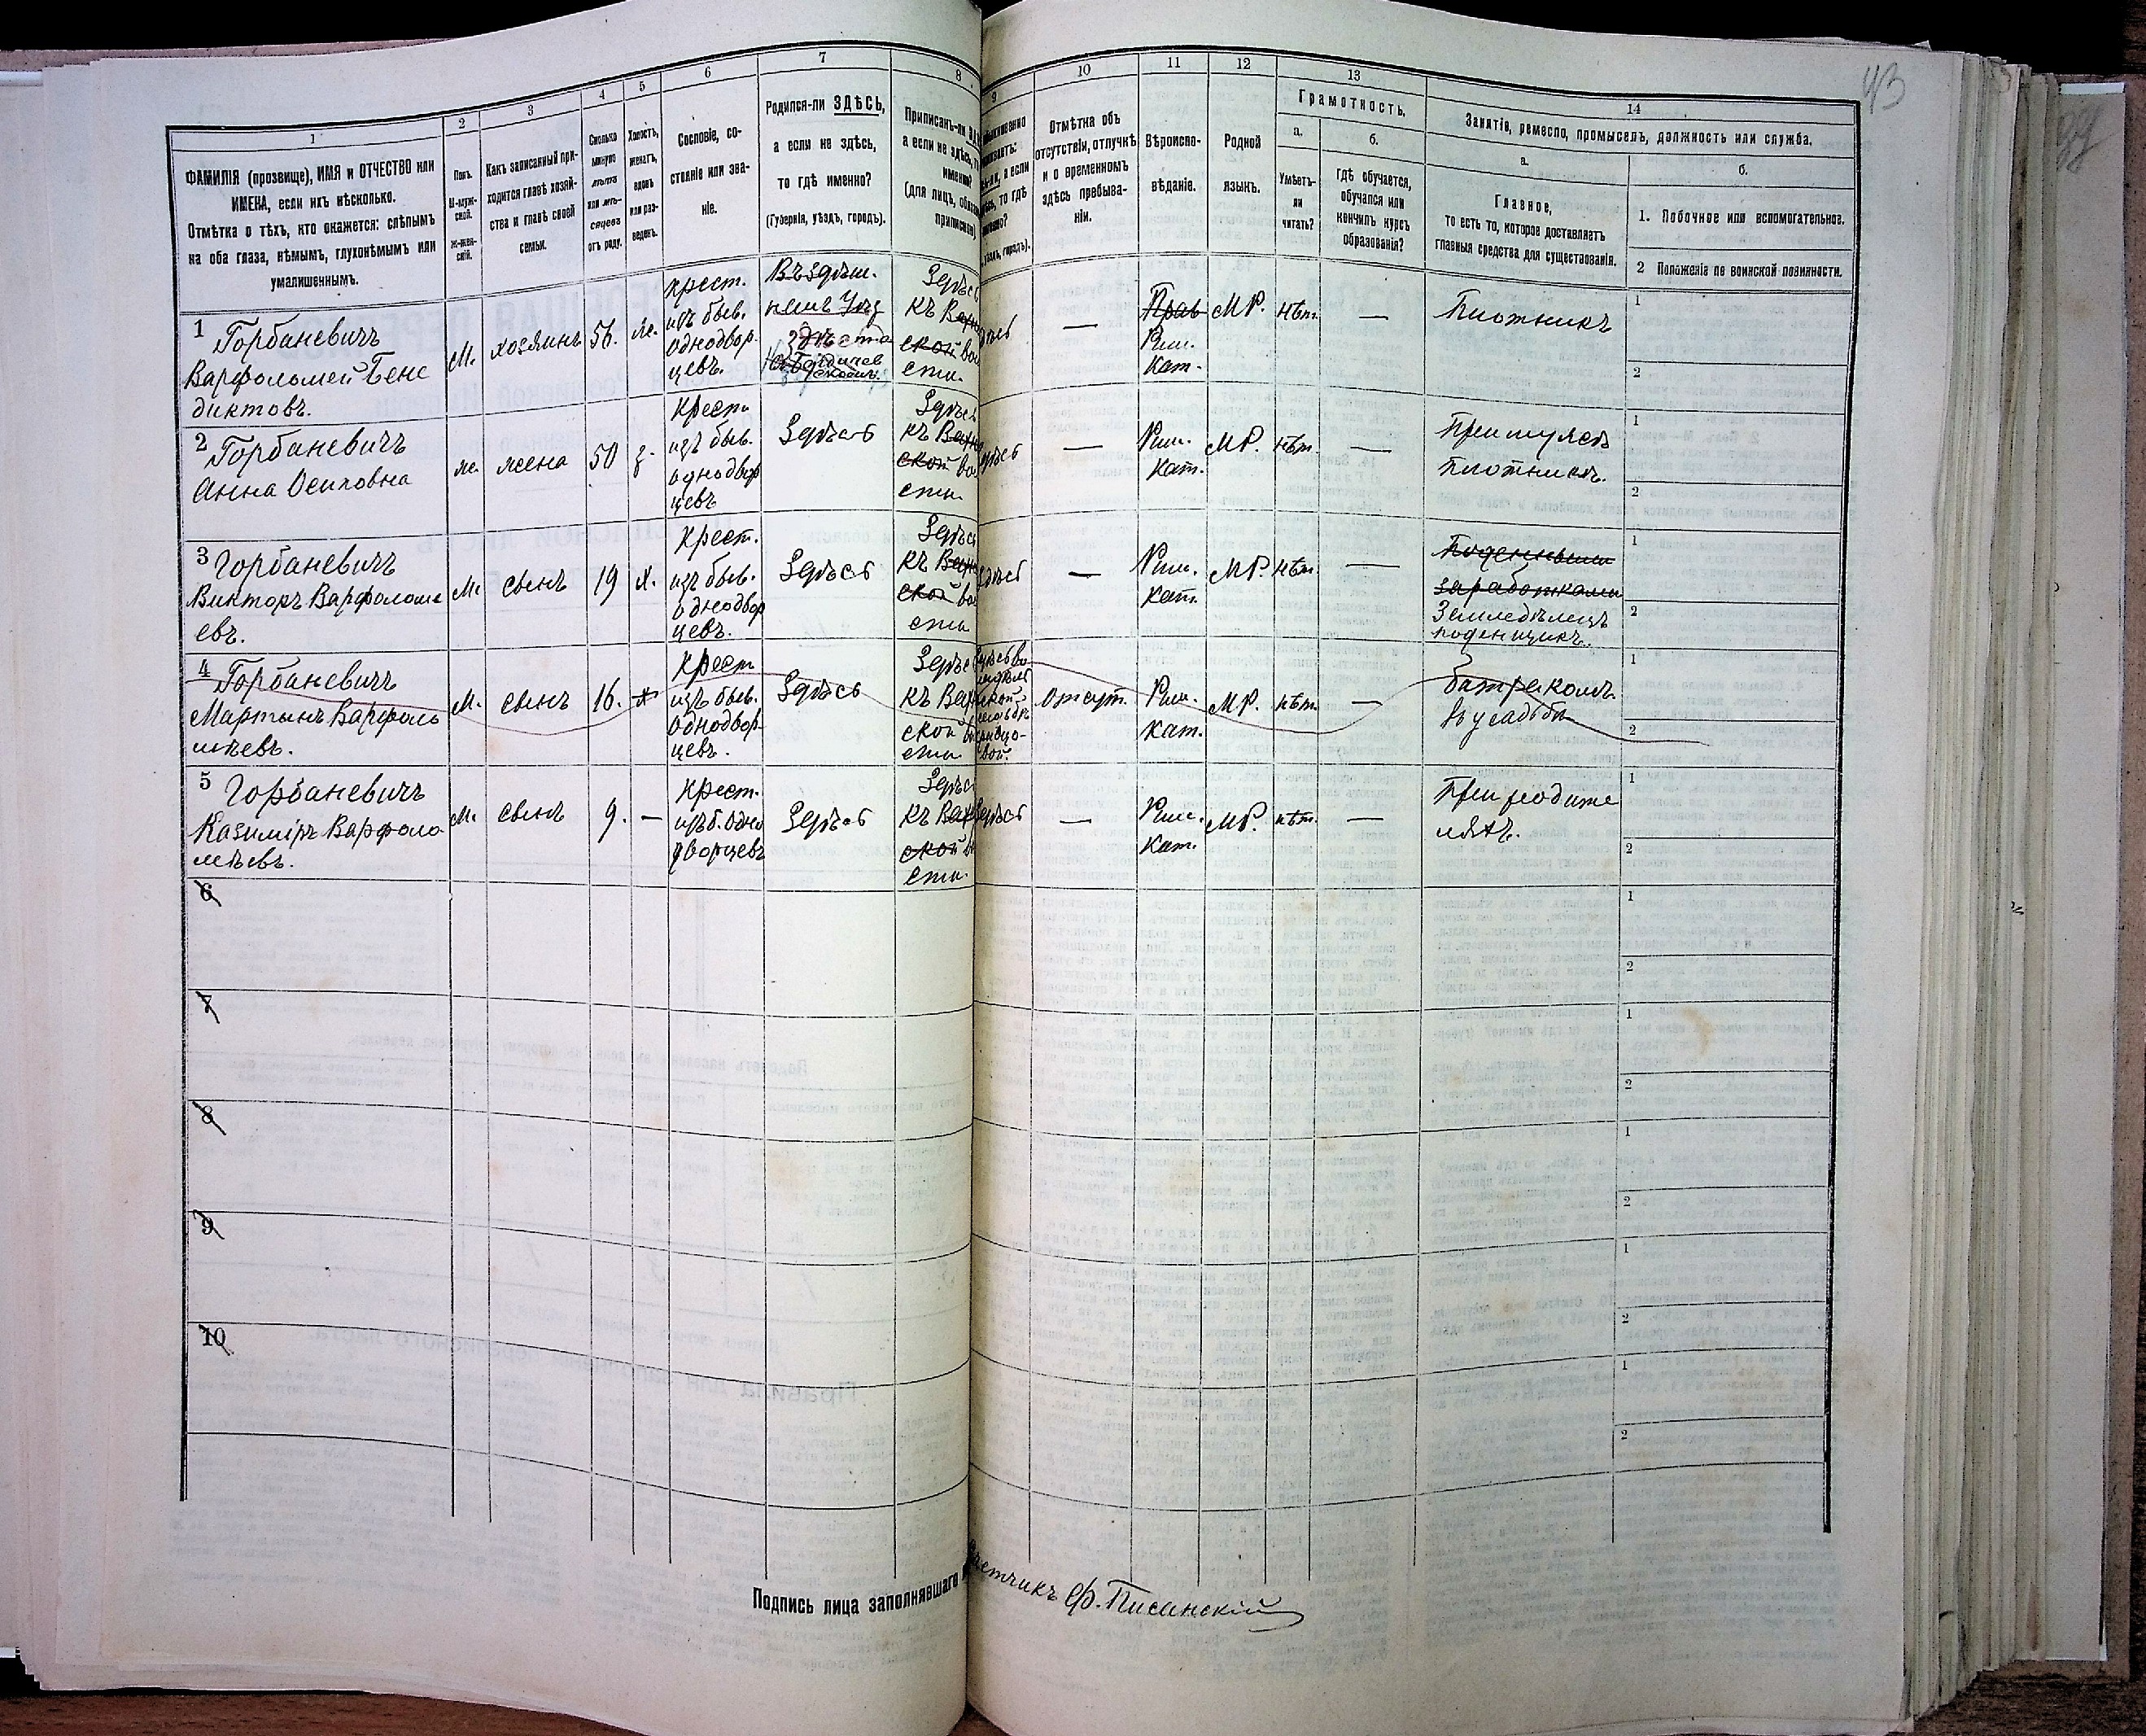 43
1
2
3
4
5
6
7
8
9
10
11
12
13
14
ФАМИЛІЯ (прозвище), ИМЯ и ОТЧЕСТВО или
ИМЕНА, если ихъ нѣсколько.
Отмѣтка о тѣхъ, кто окажется: слѣпымъ
на оба глаза, нѣмымъ, глухонѣмымъ или
умалишеннымъ.
Полъ.
М-муж-
ской.
Ж-жен-
скій.
Какъ записанный при-
ходится главѣ хозяй-
ства и главѣ своей
семьи.
Сколько
минуло
лѣтъ
или мѣ-
сяцевъ
отъ роду.
Холостъ,
женатъ,
вдовъ
или раз-
веденъ.
Сословіе, со-
стояніе или зва-
ніе.
Родился-ли ЗДѢСЬ,
а если не здѣсь,
то гдѣ именно?
(Губернія, уѣздъ, городъ).
Приписанъ-ли
а если не здѣсь,
(для лицъ,
Отмѣтка объ
отсутствіи, отлучкѣ
и о временномъ
здѣсь пребыва-
ніи.
Вѣроиспо-
вѣданіе.
Родной
языкъ.
Грамотность.
а.
Умѣетъ-
ли
читать?
б.
Гдѣ обучается,
обучался или
кончилъ курсъ
образованія?
Занятіе, ремесло, промыселъ, должность или служба.
а.
Главное,
то есть то, которое доставляетъ
главныя средства для существованія.
б.
1. Побочное или вспомогательное.
2 Положеніе по воинской повинности.
1 Горбаневичъ
Варфоломей Бене
диктовъ.
М.
хозяинъ
56.
ж.
крест.
изъ быв.
однодвор.
цевъ.
Здѣсь
къ
ской во
сти.
—
Прав
Рим.
Кат.
МР.
нѣт.
—
Плотникъ
1
2
2 Горбаневичъ
Анна Осиповна
ж.
жена
50
з.
Крест
изъ быв.
однодвор
цевъ
Здѣсь
Здѣсь
къ
ской во
сти
—
Рим.
Кат.
МР.
нѣт.
—
При мужѣ
плотникъ.
1
2
3 Горбаневичъ
Викторъ Варфоломе
евъ.
М.
сынъ
19
х.
крест.
изъ быв.
однодвор
цевъ.
Здѣсь
Здѣсь
къ
ской во
сти
—
Рим.
Кат.
МР.
нѣт.
—
Поденными
заработками
Земледѣлецъ
поденщикъ.
1
2
4 Горбаневичъ
Мартынъ Варфоло
мѣевъ.
М.
сынъ
16.
х
Крест
изъ быв.
однодвор-
цевъ.
Здѣсь
Здѣсь
къ
ской
сти
отсут.
Рим.
Кат.
МР.
нѣт.
—
батракомъ
въ усадьбѣ
1
2
5 Горбаневичъ
Казиміръ Варфоло
мѣевъ.
М.
сынъ
9.
—
Крест.
изъ б. одно
дворцевъ
Здѣсь
Здѣсь
къ
ской
сти.
—
Рим.
Кат.
МР.
нѣт.
—
При родите
ляхъ.
1
2
6
1
2
7
1
2
8
1
2
9
1
2
10
1
2
Подпись лица заполнявшаго
Ф. Писанскій